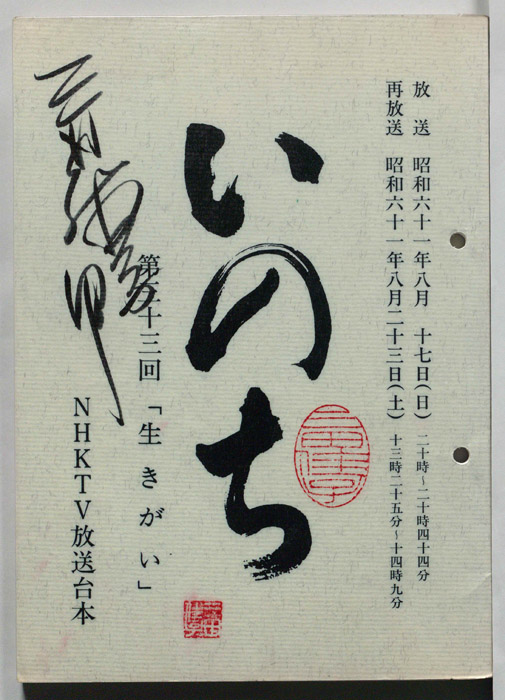 放　送　昭和六十一年八月　十七日(日)　二十時～二十時四十四分
再放送　昭和六十一年八月二十三日(土)　十三時二十五分～十四時九分
いのち
第三十三回「生きがい」
NHKTV放送台本